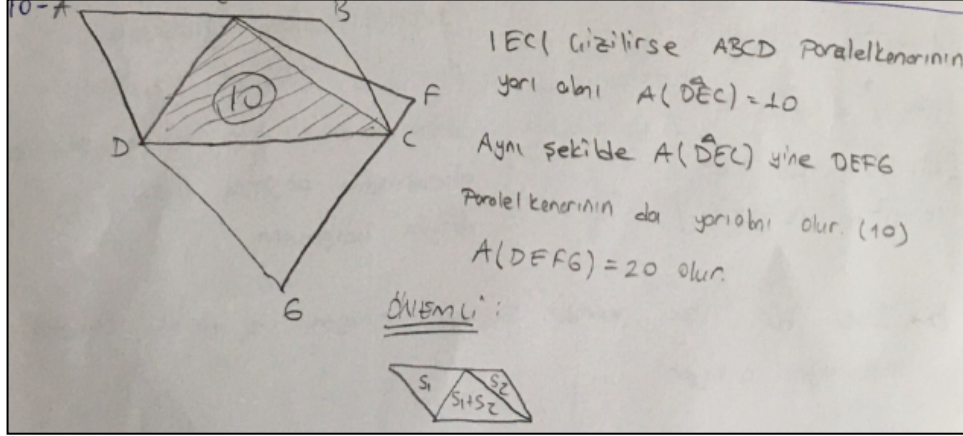 10-A
B
10
F
D
C
G
|EC| Çizilirse ABCD Paralelkenarının
yarı alanı A(DEC) = 10
Aynı şekilde A(DEC) yine DEFG
Paralelkenarının da yarıalanı olur. (10)
A(DEFG) = 20 olur.
ÖNEMLİ :
S1
S1+S2
S2